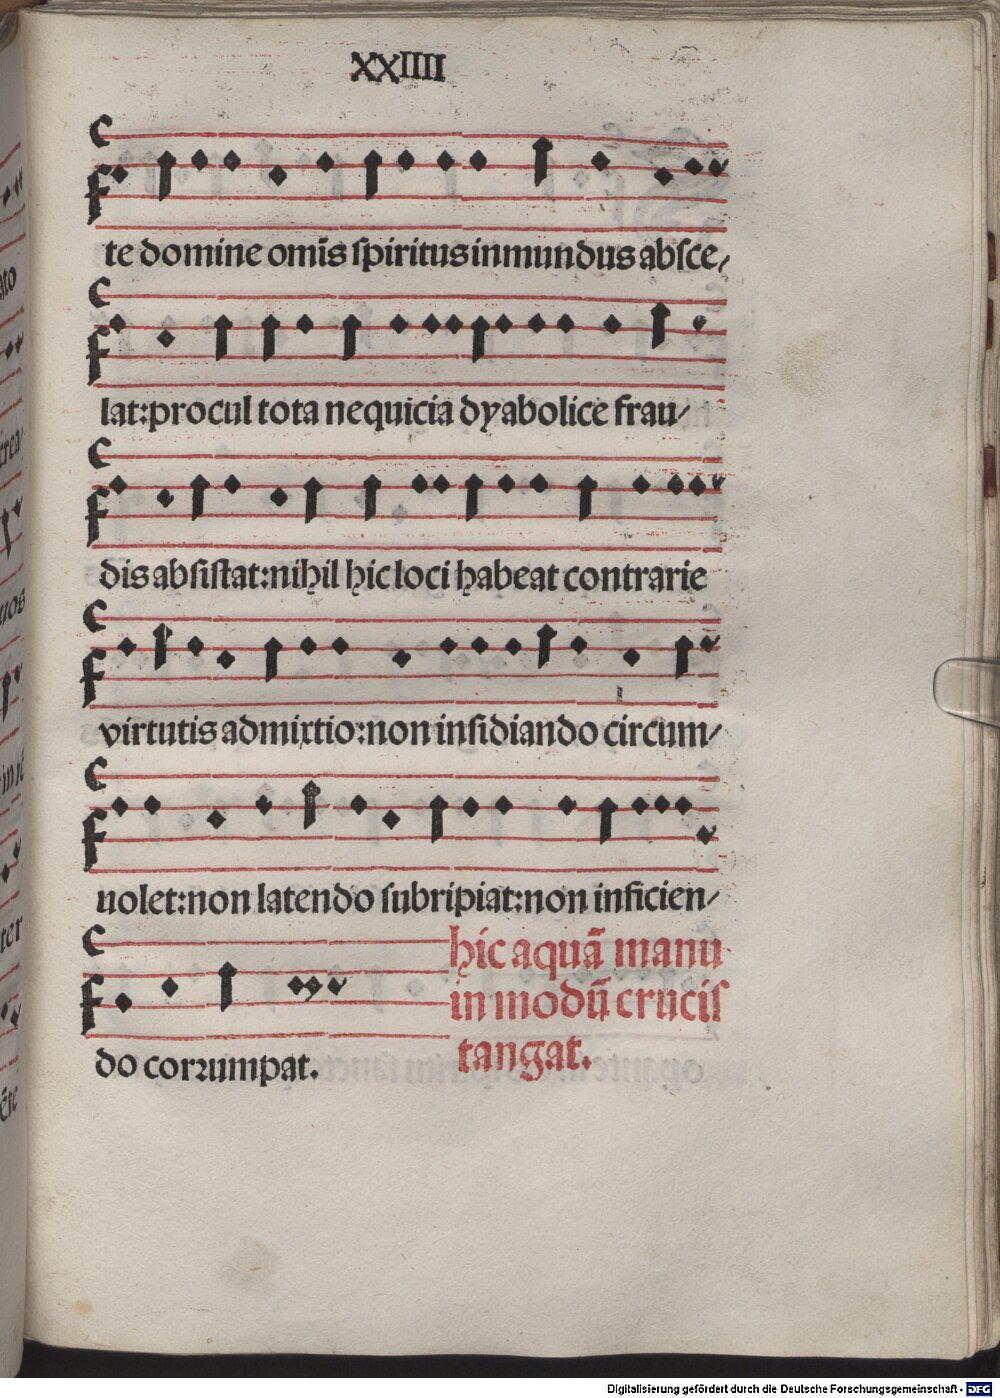 XXIIII
te domine omīs spiritus inmundus absce/
lat:procul tota nequicia dyabolice frau/
dis absistat:nihil hic loci habeat contrarie
virtutis admixtio:non insidiando circum/
uolet:non latendo subripiat:non inficien/
do corrumpat.
hic aquā manu
in modū crucis
tangat.
Digitalisierung gefördert durch die Deutsche Forschungsgemeinschaft - DFG